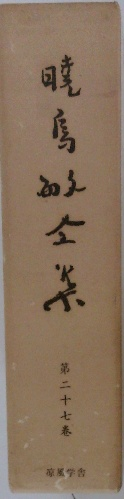 曉烏敏全集
第二十七巻
涼風学舎